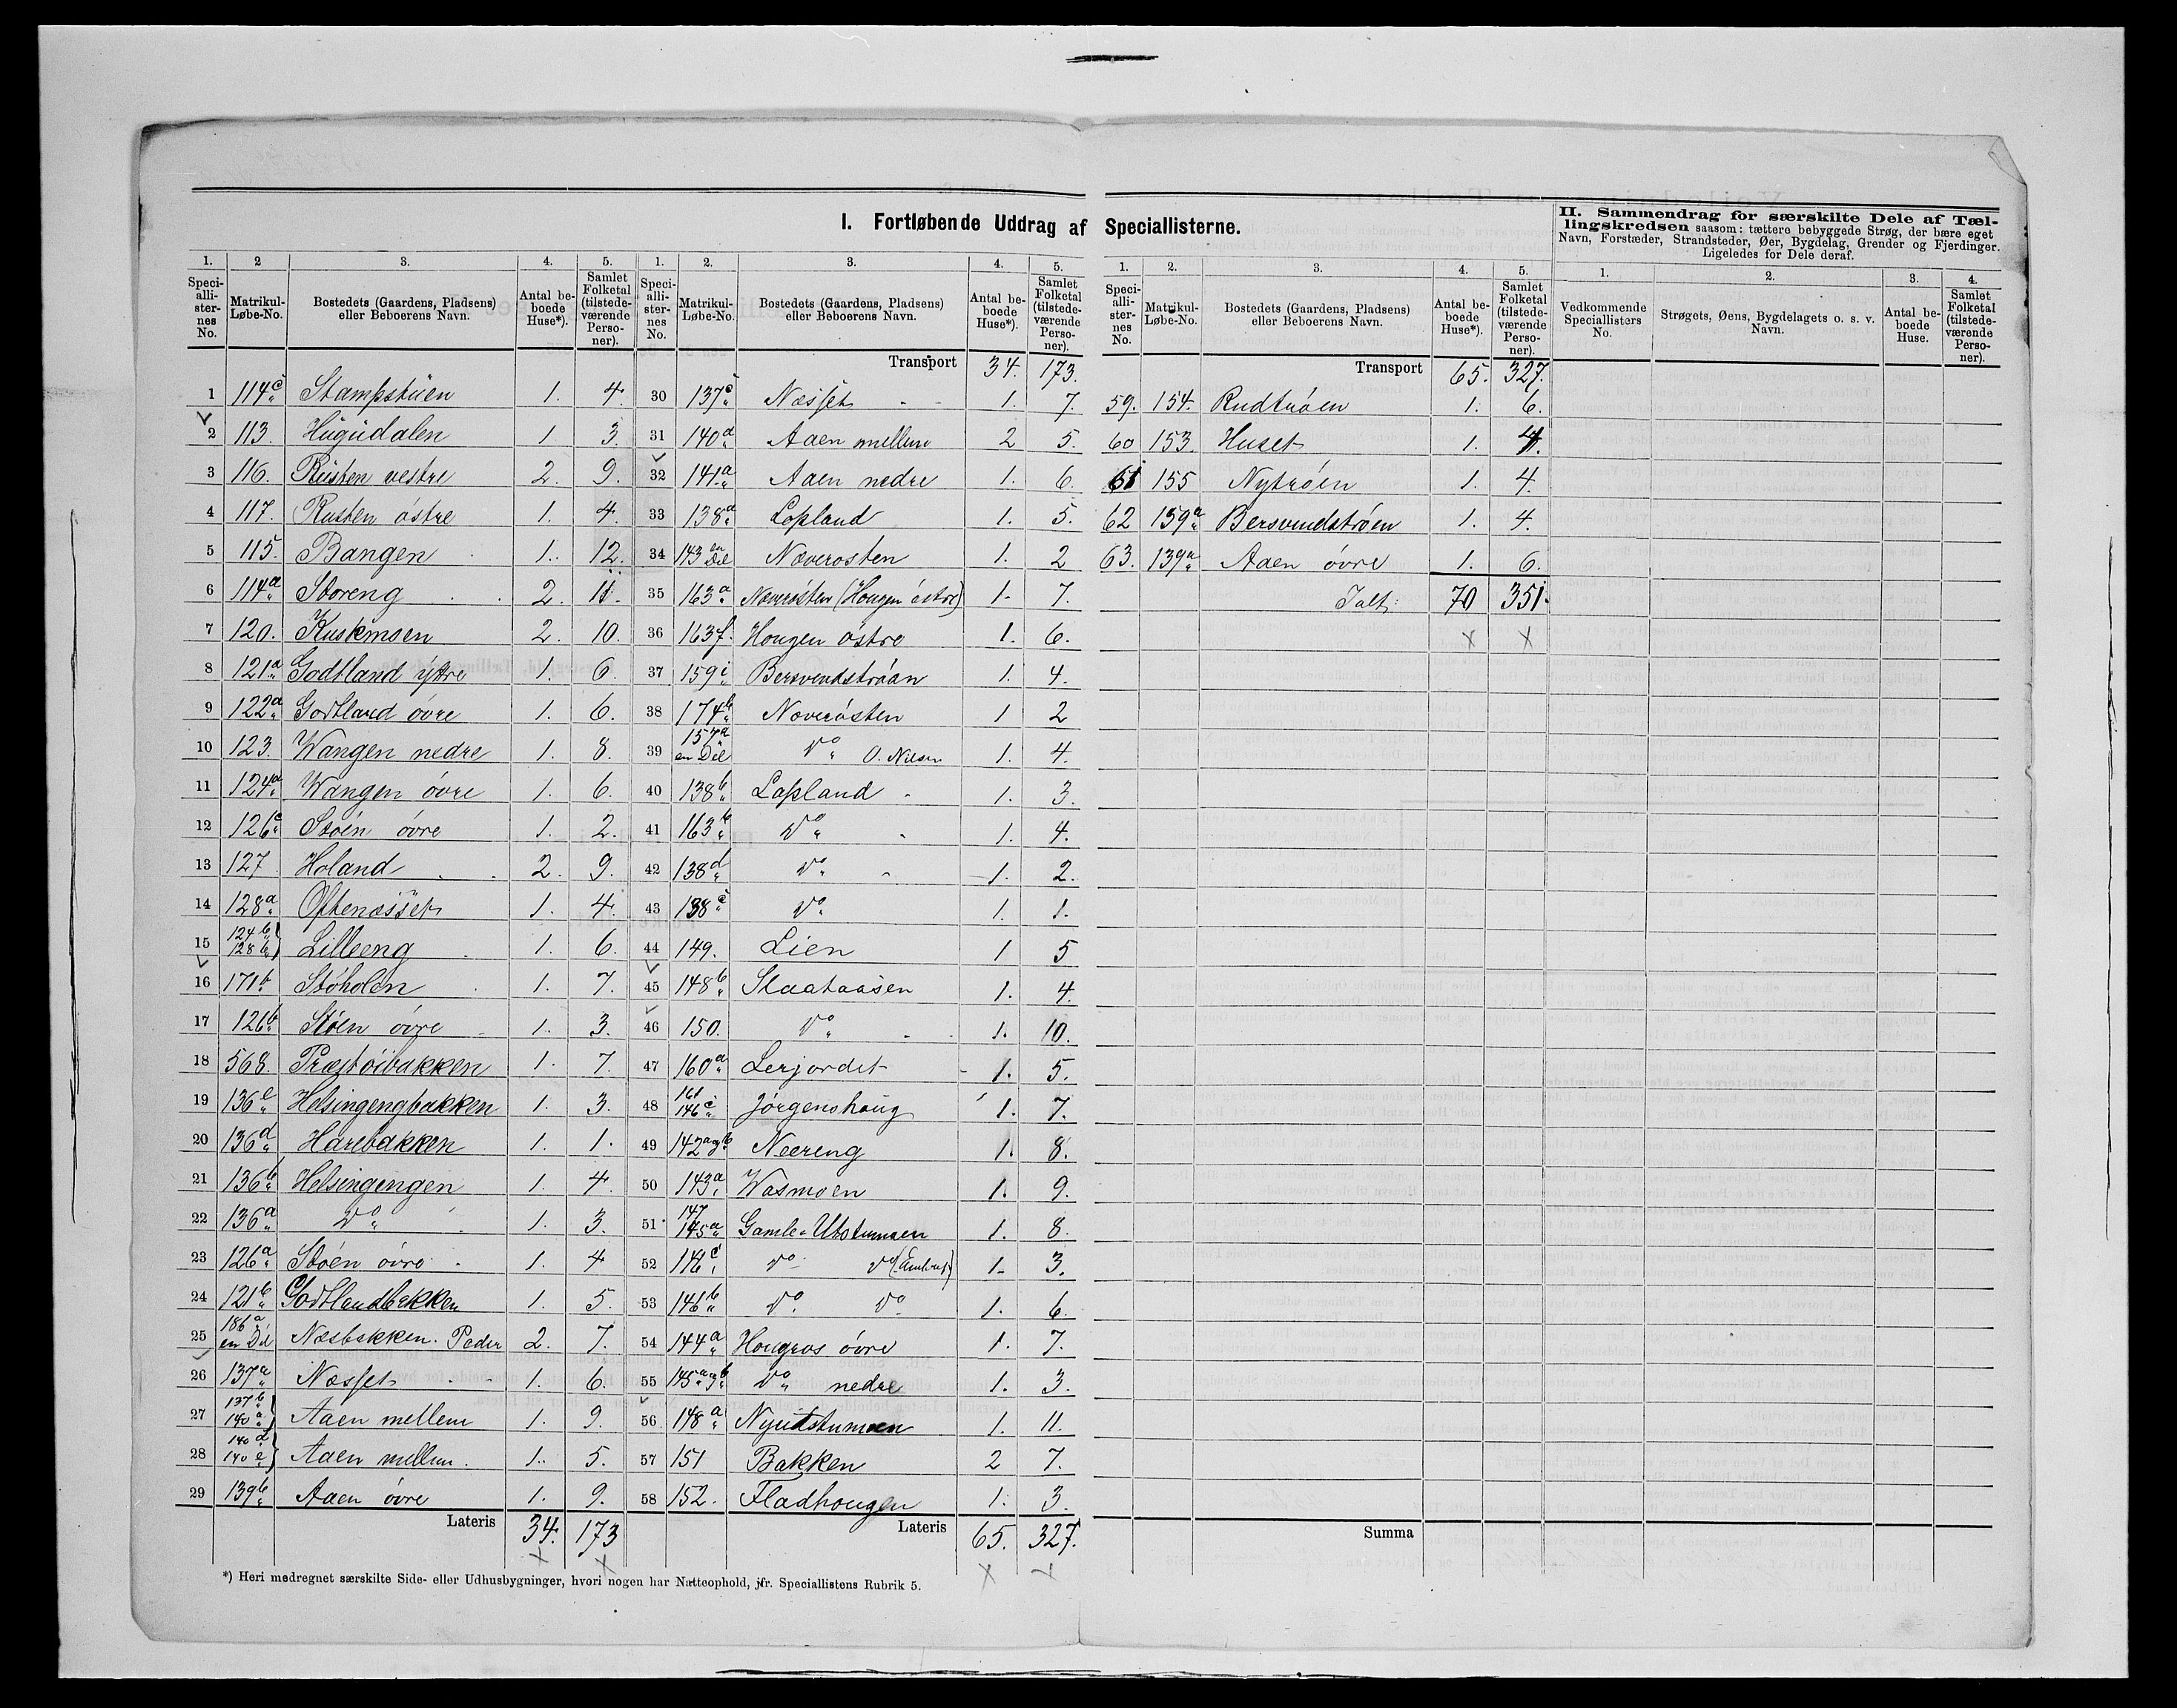 I. Fortløbende Uddrag af Speciallisterne.
II. Sammendrag for særskilte Dele af Tæl-
lingskredsen saasom: tættere bebyggede Strøg, der bære eget
Navn, Forstæder, Strandsteder, Øer, Bygdelag, Grender og Fjerdinger.
Ligeledes for Dele deraf.
1. 2 3. 4. 5.
Speciallisternes No. Matrikul-Løbe-No. Bostedets (Gaardens, Pladsens) eller Beboerens Navn. Antal beboede Huse*). Samlet Folketal (tilstedeværende Personer).
1 114c Stampstuen 1. 4.
2 113. Hugudalen 1 3.
3 116. Rusten vestre 2. 9.
4 117. Rusten østre 1. 4.
5 115. Bangen 1. 12.
6 114a Storeng 2. 11.
7 120. Kuskmoen 2. 10.
8 121a Godtland ytre 1. 6.
9 122a Godtland øvre 1. 6.
10 123. Wangen nedre 1. 8.
11 124a Wangen øvre 1. 6.
12 126c Støen øvre 1. 2.
13 127 Holand 2. 9.
14 128a Oftenæsset 1. 4.
15 124b 128b Lilleeng 1. 6.
16 171b Støholen 1. 7.
17 126b Støen øvre 1. 3.
18 568. Præstøibakken 1. 7.
19 136e Helsingengbakken 1. 3.
20 136d Harebakken 1. 1.
21 136b Helsingengen 1. 4.
22 136a Do 1. 3.
23 126a Støen øvre 1. 4
24 121b Godtlandbakken 1. 5.
25 186a en Del Næsbakken. Peder 2. 7.
26 137a Næsset 1. 6.
27 137b 140a Aaen mellem 1. 9.
28 140d 140e Aaen mellem. 1. 5.
29 139b Aaen øvre 1. 9.
Lateris 34. 173
1. 2. 3. 4. 5.
Speciallisternes No. Matrikul-Løbe-No. Bostedets (Gaardens, Pladsens) eller Beboerens Navn. Antal beboede Huse*). Samlet Folketal (tilstedeværende Personer).
Transport 34. 173.
30 137c Næsset 1. 7.
31 140a Aaen mellem 2 5.
32 141a Aaen nedre 1. 6.
33 138a Lopland 1. 5.
34 143 en Del Næverosten 1. 2
35 163a Næverøsten (Hougen østre) 1. 7.
36 163f. Hougen østre 1. 6.
37 159i Bersvendstrøan 1. 4.
38 174b Noverøsten 1 2
39 157a en Del Do O. Nilsen 1. 4.
40 138b Lopland 1. 3.
41 163b Do 1. 4.
42 138d Do 1. 2.
43 138c Do 1. 1.
44 149. Lien 1 5
45 148b Slaataasen 1. 4.
46 150. Do 1. 10.
47 160a Lerjordet 1. 5.
48 161 146c Jørgenshaug 1. 7.
49 142a og b Neereng 1. 8.
50 143a Wasmoen 1. 9.
51 147 145a Gamle-Utstumoen 1. 8.
52 146c Do Do 1. 3.
53 146b Do Do 1. 6.
54 144a Hougros øvre 1. 7.
55 145a og b Do nedre 1. 3.
56 148a Nyutstumoen 1. 11.
57 151 Bakken 2 7.
58 152. Fladhougen 1. 3.
Lateris 65. 327.
1. 2. 3. 4. 5.
Speciallisternes No. Matrikul-Løbe-No. Bostedets (Gaardens, Pladsens) eller Beboerens Navn. Antal beboede Huse*). Samlet Folketal (tilstedeværende Personer).
Transport 65. 327.
59. 154. Rudtrøen 1. 6.
60 153. Huset 1. 4.
61 155 Nytrøen 1. 4.
62 159a Bersvendstrøen 1. 4.
63. 139a Aaen øvre 1. 6.
Ialt: 70 351.
Summa
1. 2. 3. 4.
Vedkommende Speciallisters No. Strøgets, Øens, Bygdelagets o. s. v. Navn. Antal beboede Huse. Samlet Folketal (tilstedeværende Personer).
*) Heri medregnet særskilte Side- eller Udhusbygninger, hvori nogen har Natteophold, jfr. Speciallistens Rubrik 5.